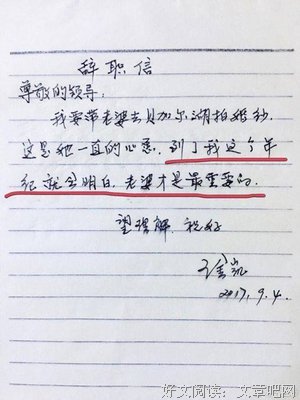 辞职信
尊敬的领导：
我要带老婆去贝加尔湖拍婚纱，
这是她一直的心愿，到了我这个年
纪就会明白，老婆才是最重要的。
望理解 祝好
2017.9.4
好文阅读：文章吧网